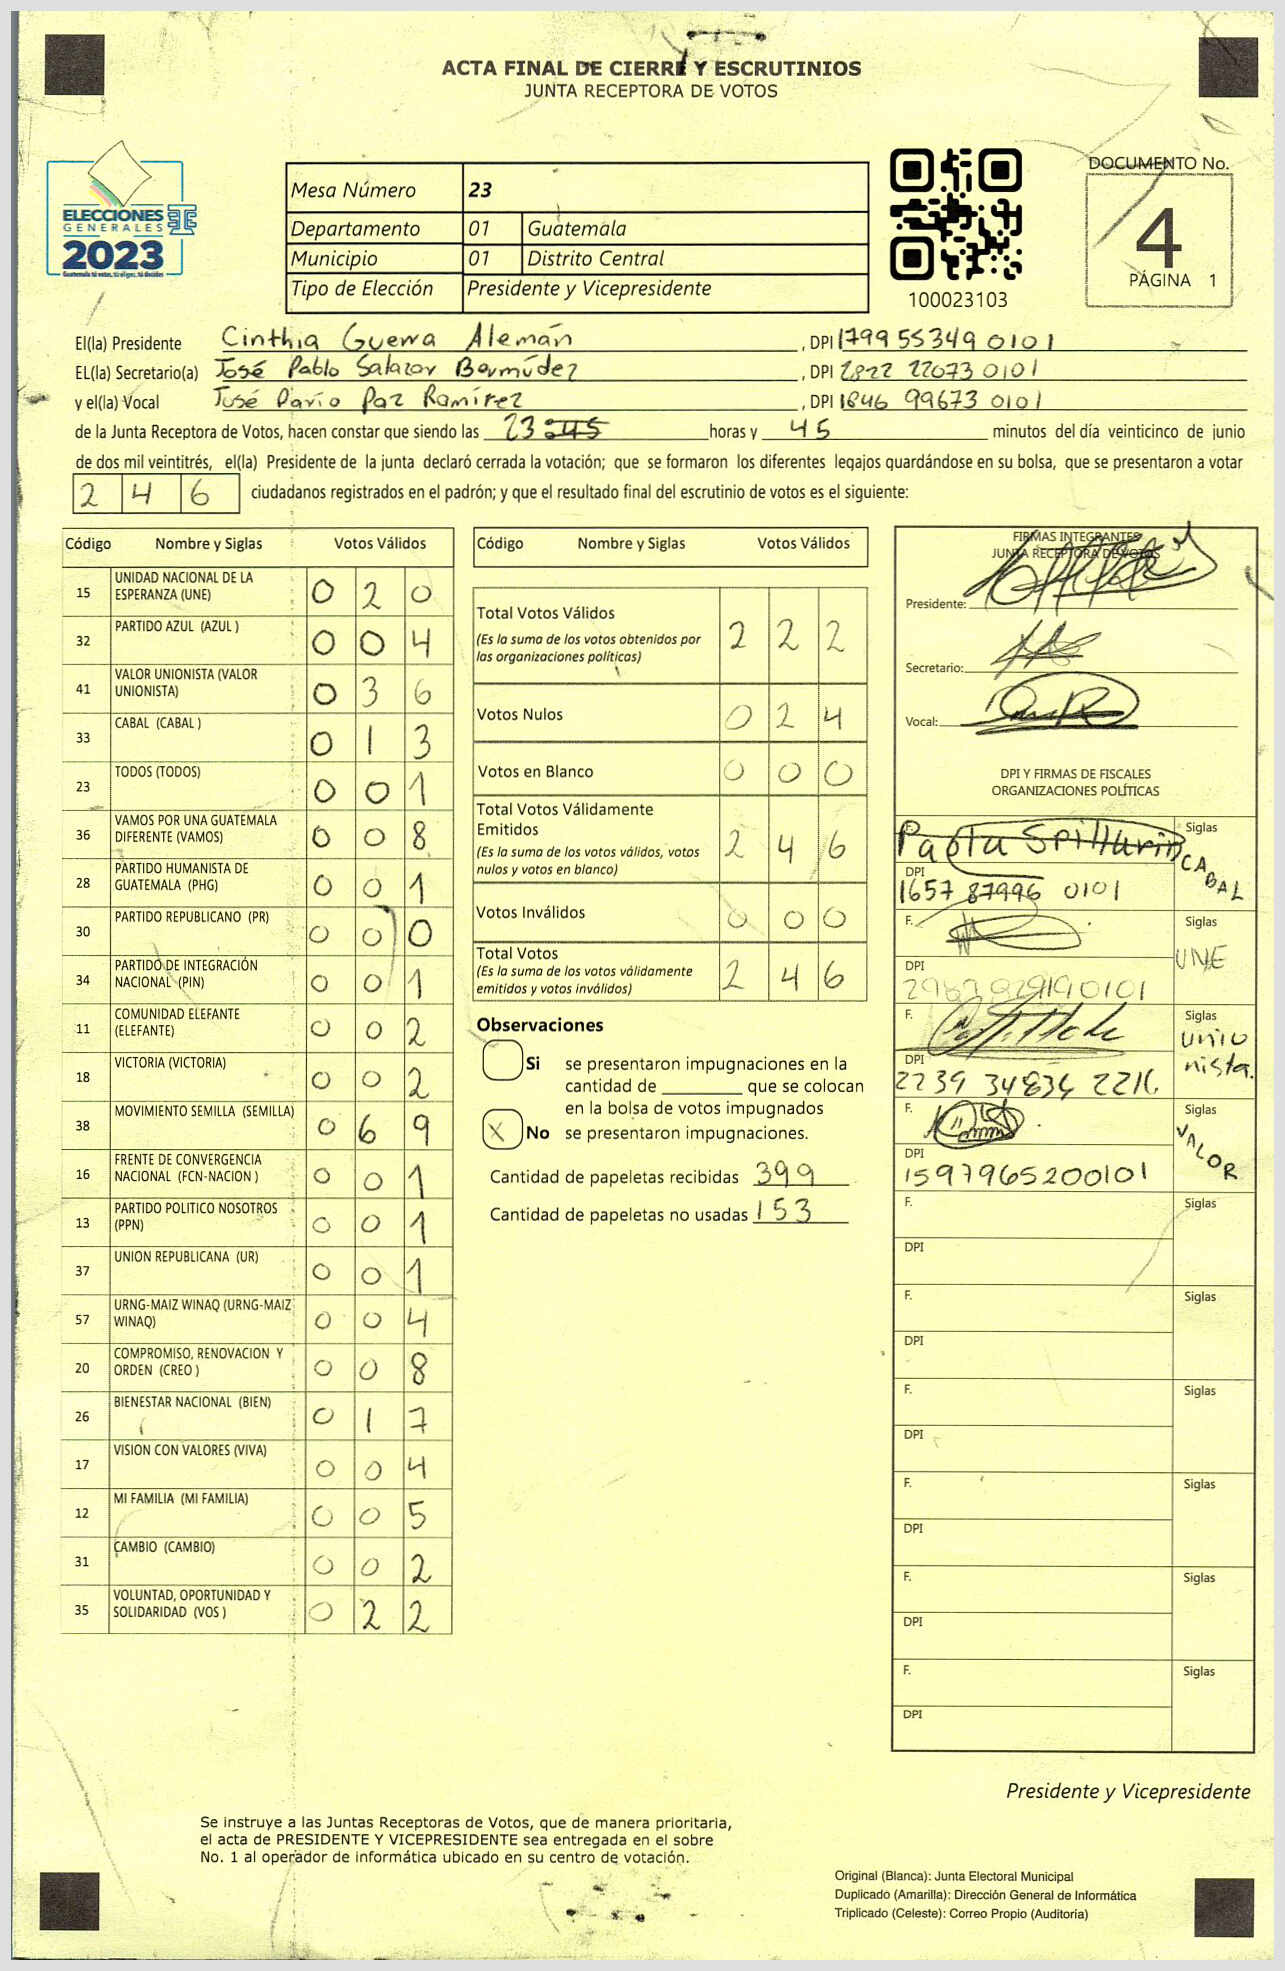 ACTA FINAL DE CIERRE Y ESCRUTINIOS
JUNTA RECEPTORA DE VOTOS
ELECCIONES
GENERALES
2023
Guatemala tú votas, tú eliges, tú decides
Mesa Número 23
Departamento 01 Guatemala
Municipio 01 Distrito Central
Tipo de Elección Presidente y Vicepresidente
100023103
DOCUMENTO No.
4
PÁGINA 1
El(la) Presidente Cinthia Guerra Alemán , DPI 1799 55349 0101
EL(la) Secretario(a) José Pablo Salazar Bermúdez , DPI 2822 22073 0101
y el(la) Vocal José Darío Paz Ramírez , DPI 1846 99673 0101
de la Junta Receptora de Votos, hacen constar que siendo las 23 horas y 45 minutos del día veinticinco de junio
de dos mil veintitrés, el(la) Presidente de la junta declaró cerrada la votación; que se formaron los diferentes legajos guardándose en su bolsa, que se presentaron a votar
2 4 6 ciudadanos registrados en el padrón; y que el resultado final del escrutinio de votos es el siguiente:
Código Nombre y Siglas Votos Válidos
15 UNIDAD NACIONAL DE LA ESPERANZA (UNE) 0 2 0
32 PARTIDO AZUL (AZUL ) 0 0 4
41 VALOR UNIONISTA (VALOR UNIONISTA) 0 3 6
33 CABAL (CABAL ) 0 1 3
23 TODOS (TODOS) 0 0 1
36 VAMOS POR UNA GUATEMALA DIFERENTE (VAMOS) 0 0 8
28 PARTIDO HUMANISTA DE GUATEMALA (PHG) 0 0 1
30 PARTIDO REPUBLICANO (PR) 0 0 0
34 PARTIDO DE INTEGRACIÓN NACIONAL (PIN) 0 0 1
11 COMUNIDAD ELEFANTE (ELEFANTE) 0 0 2
18 VICTORIA (VICTORIA) 0 0 2
38 MOVIMIENTO SEMILLA (SEMILLA) 0 6 9
16 FRENTE DE CONVERGENCIA NACIONAL (FCN-NACION ) 0 0 1
13 PARTIDO POLITICO NOSOTROS (PPN) 0 0 1
37 UNION REPUBLICANA (UR) 0 0 1
57 URNG-MAIZ WINAQ (URNG-MAIZ WINAQ) 0 0 4
20 COMPROMISO, RENOVACION Y ORDEN (CREO ) 0 0 8
26 BIENESTAR NACIONAL (BIEN) 0 1 7
17 VISION CON VALORES (VIVA) 0 0 4
12 MI FAMILIA (MI FAMILIA) 0 0 5
31 CAMBIO (CAMBIO) 0 0 2
35 VOLUNTAD, OPORTUNIDAD Y SOLIDARIDAD (VOS ) 0 2 2
Código Nombre y Siglas Votos Válidos
Total Votos Válidos 2 2 2
(Es la suma de los votos obtenidos por
las organizaciones políticas)
Votos Nulos 0 2 4
Votos en Blanco 0 0 0
Total Votos Válidamente
Emitidos 2 4 6
(Es la suma de los votos válidos, votos
nulos y votos en blanco)
Votos Inválidos 0 0 0
Total Votos 2 4 6
(Es la suma de los votos válidamente
emitidos y votos inválidos)
Observaciones
Si se presentaron impugnaciones en la
cantidad de ________ que se colocan
en la bolsa de votos impugnados
X No se presentaron impugnaciones.
Cantidad de papeletas recibidas 399
Cantidad de papeletas no usadas 153
FIRMAS INTEGRANTES
JUNTA RECEPTORA DE VOTOS
Presidente:
Secretario:
Vocal:
DPI Y FIRMAS DE FISCALES
ORGANIZACIONES POLÍTICAS
F. Paola Siglas
DPI 1657 87996 0101 CABAL
F. Siglas
DPI UNE
F. Siglas
DPI 2239 34834 Unionista.
F. Siglas
DPI 1597965200101 VALOR
F. Siglas
DPI
F. Siglas
DPI
F. Siglas
DPI
F. Siglas
DPI
F. Siglas
DPI
F. Siglas
DPI
Presidente y Vicepresidente
Se instruye a las Juntas Receptoras de Votos, que de manera prioritaria,
el acta de PRESIDENTE Y VICEPRESIDENTE sea entregada en el sobre
No. 1 al operador de informática ubicado en su centro de votación.
Original (Blanca): Junta Electoral Municipal
Duplicado (Amarilla): Dirección General de Informática
Triplicado (Celeste): Correo Propio (Auditoría)